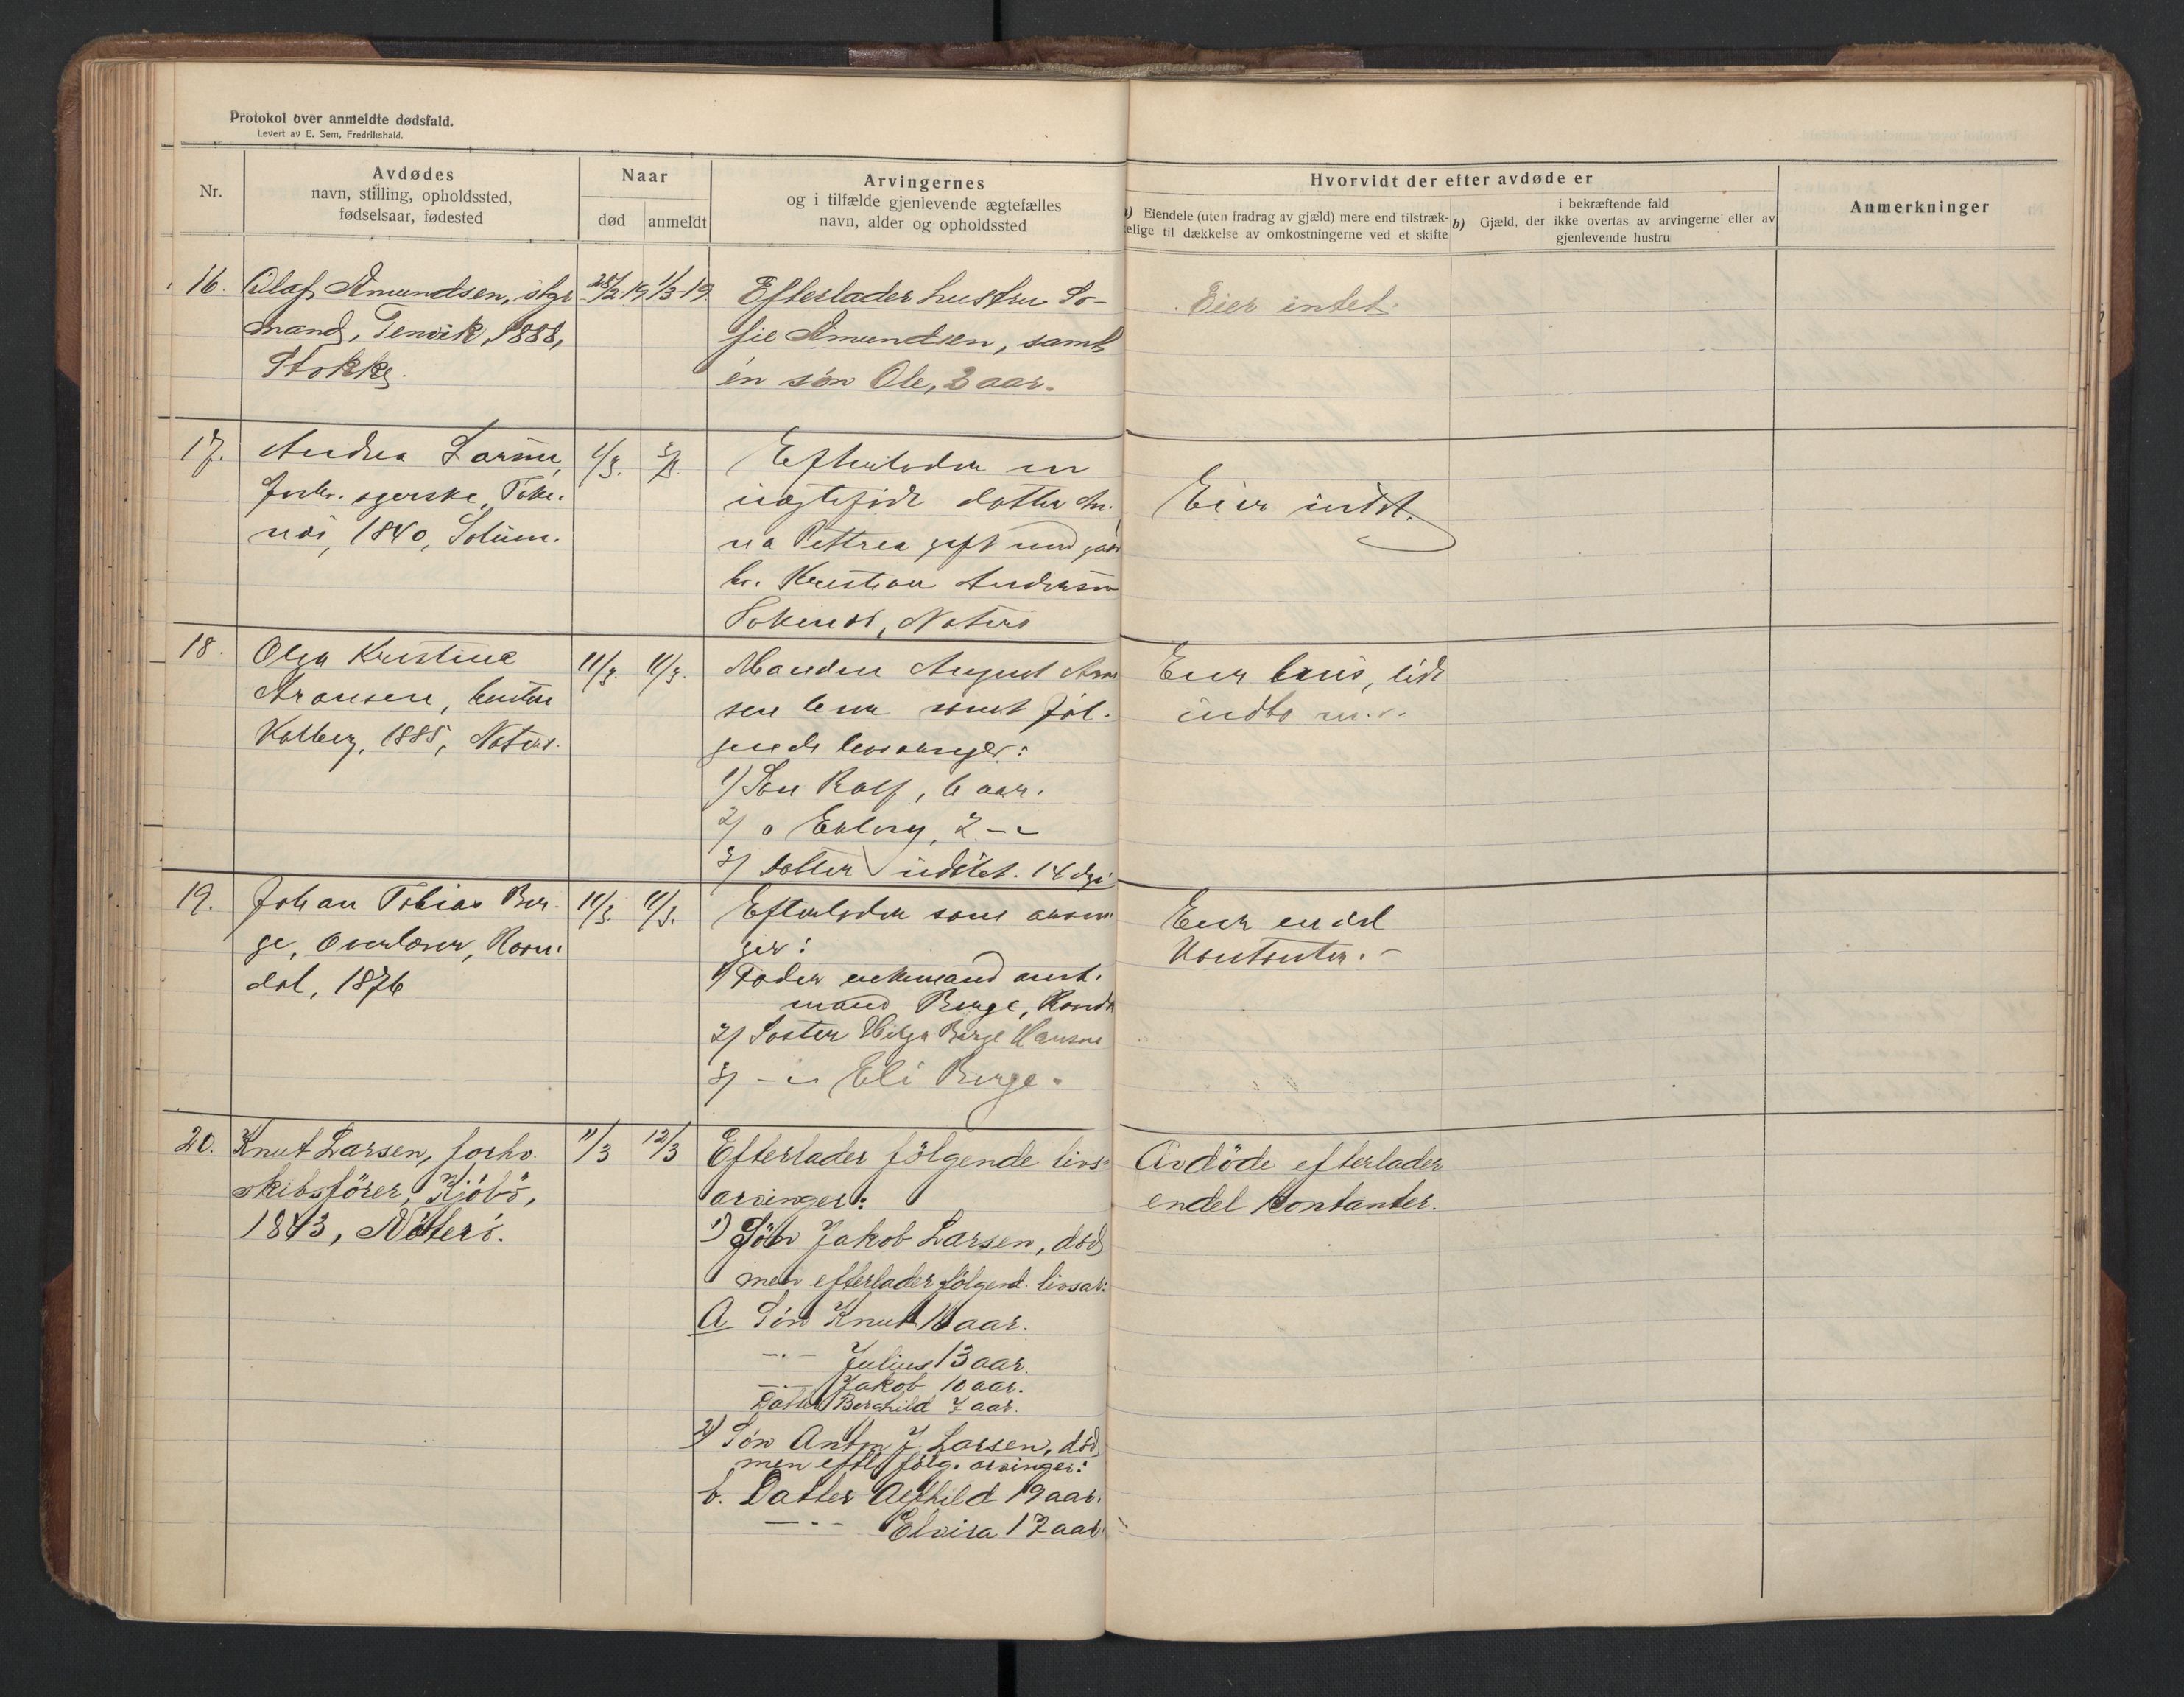 Protokol over anmeldte dødsfald.
Levert av E. Sem, Fredrikshald.
Nr.
Avdødes
navn, stilling, opholdssted,
fødselsaar, fødested
Naar
død
anmeldt
Arvingernes
og i tilfælde gjenlevende ægtefælles
navn, alder og opholdssted
Hvorvidt der efter avdøde er
a) Eiendele (uten fradrag av gjæld) mere end tilstræk-
kelige til dækkelse av omkostningerne ved et skifte
i bekræftende fald
b) Gjæld, der ikke overtas av arvingerne eller av
gjenlevende hustru
Anmerkninger
16. Olaf Amundsen, styr
mand, Tenvik, 1888,
Stokke.
28/2-19 1/3-19
Efterlader hustru So-
fie Amundsen, samt
én søn Ole, 3 aar.
Eier intet.
17. Andrea Larsen,
forh. Toke-
nös, 1840, Solum.
1/3. 3/3.
Efterlader en
uægtefødt datter An-
na Pettrea gift med
Kristian Andersen
Tokenös, Nöterö
Eier intet.
18. Olga Kristine
Aronsen, hustru
Kolberg, 1885, Nöterö.
11/3. 11/3.
Manden August Aron
sen lever samt föl-
gende livsarvinger:
1) Sön Rolf, 6 aar.
2) o Erling, 2 - "
3) Datter udöbt. 14 dge
Eier hus, lidt
indbo m.v.
19. Johan Tobias Ber-
ge, Overlærer, Rosen-
dal, 1876
10/3. 11/3.
Efterlader som arvin
ger:
1) Fader enkemand amt-
mand Berge,
2) Söster Helga Berge Hansen
3) - " Eli Berge.
Eier endel
Kontanter. -
20. Knut Larsen, forhv.
skibsförer, Kjöbö,
1843, Nöterö.
11/3 12/3
Efterlader fölgende livs-
arvinger:
1) Sön Jakob Larsen, död
men efterlader fölgend. livsar:
A Sön Knut aar.
-"- Julius 13 aar.
-"- Jakob 10 aar.
Datter Borghild 7 aar.
2) Sön Anton J. Larsen, död,
men eftl. fölg. arvinger:
b. Datter Alfhild 19 aar.
-"- Elvira 17 aar.
Avdöde efterlader
endel kontanter.